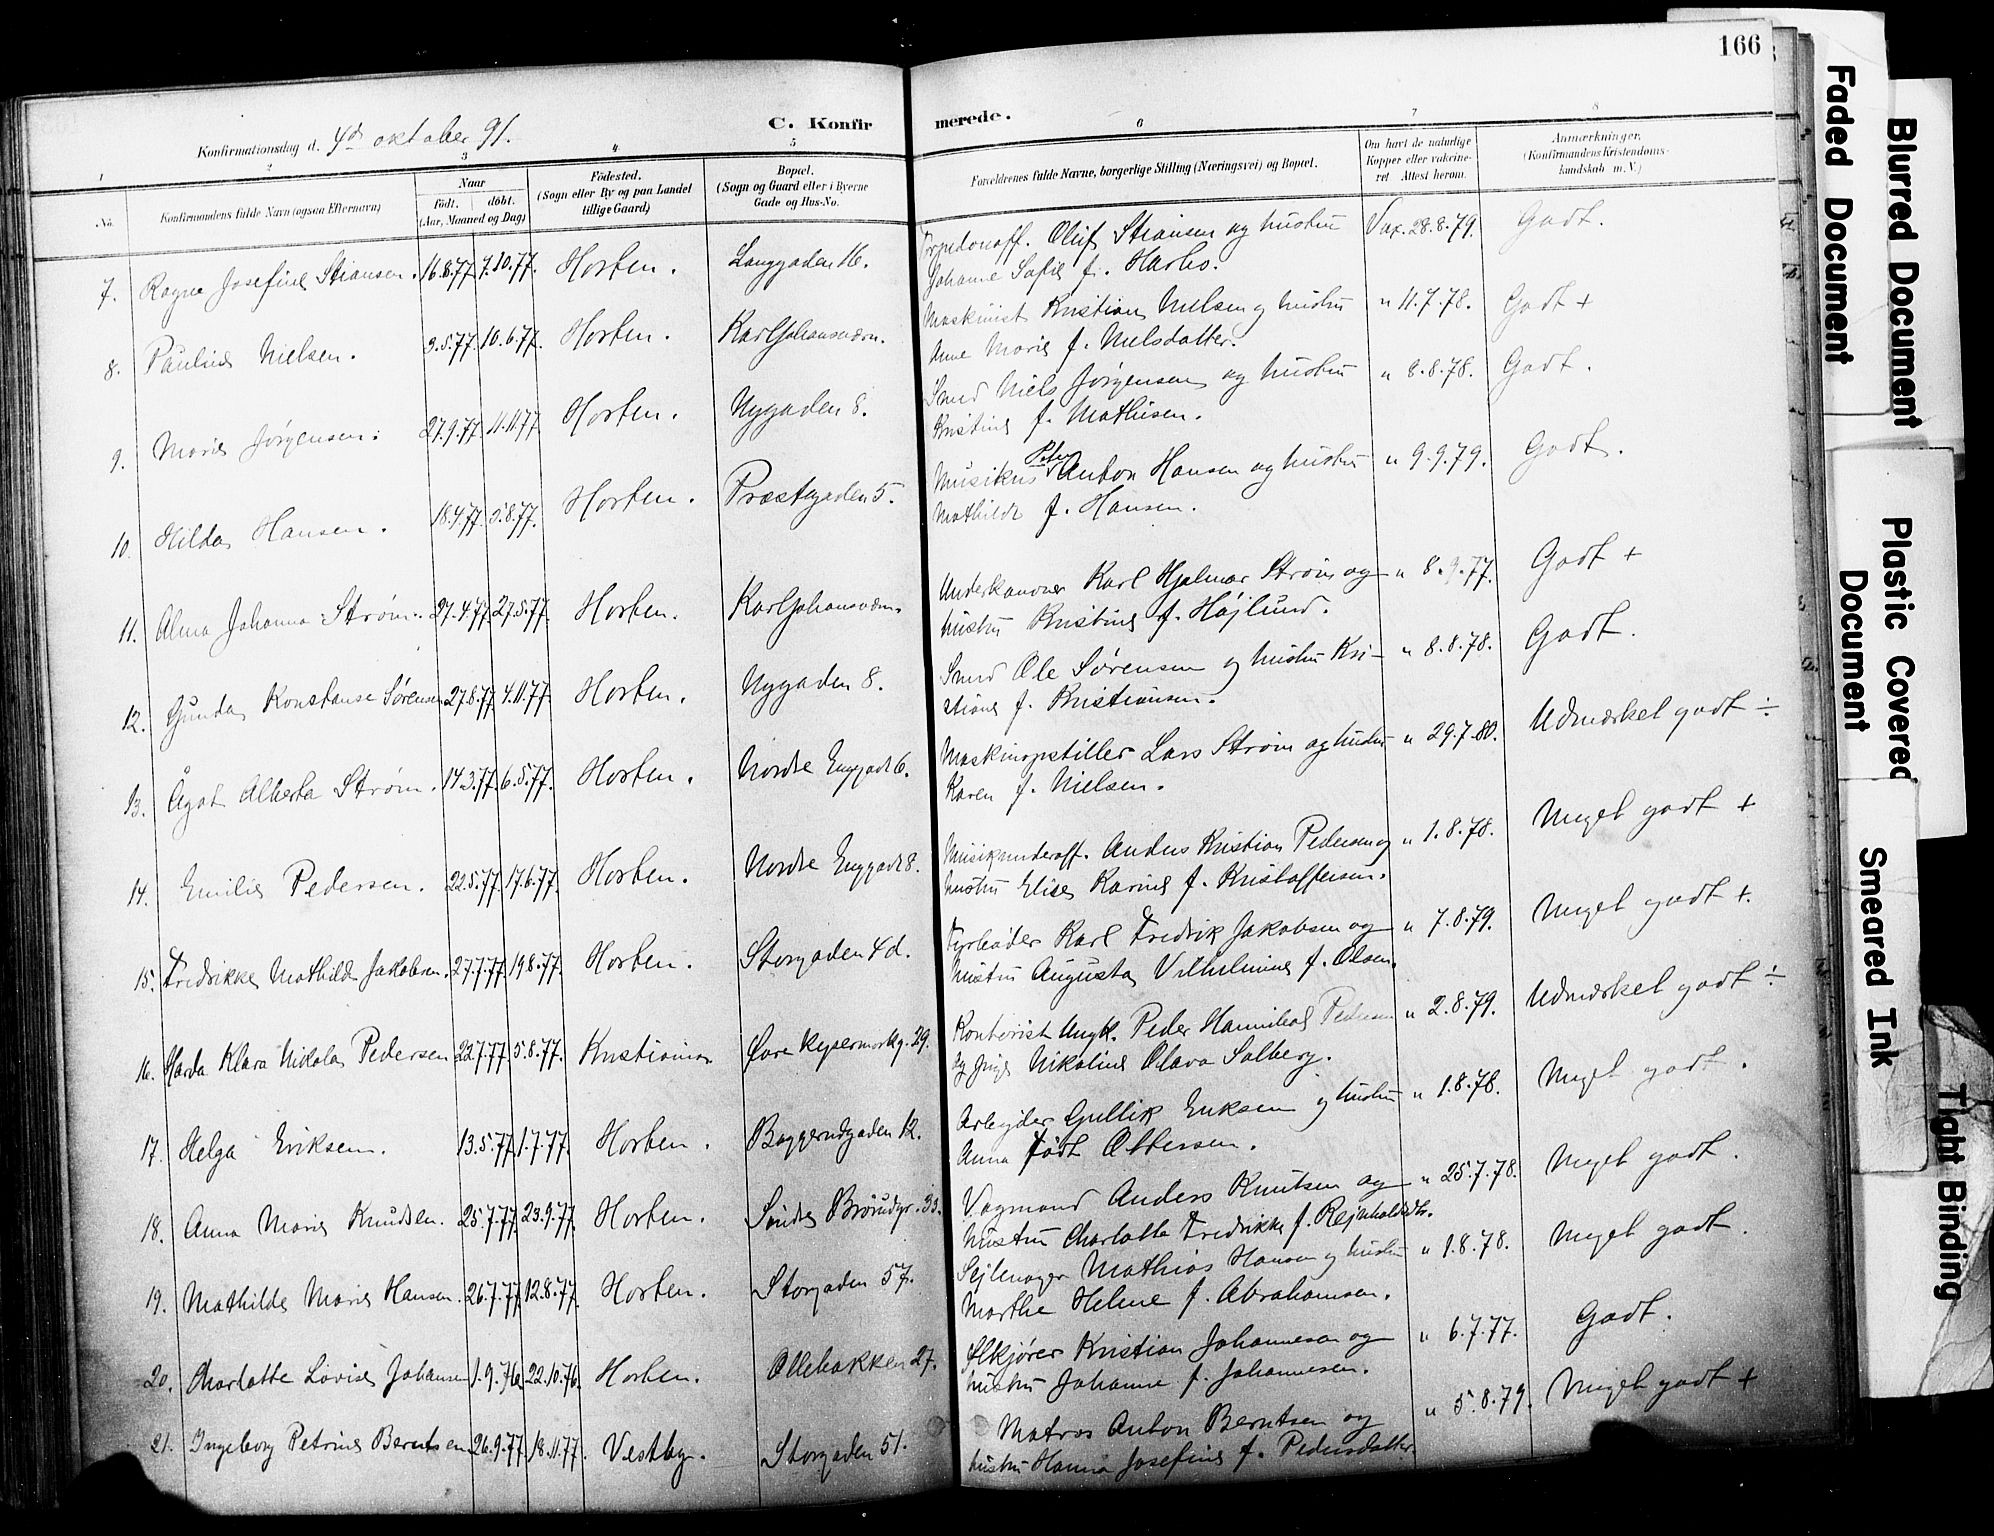 166
Konfirmationsdag d. 4de oktober 91.
C. Konfirmerede.
1 2 3 4 5 6 7 8
No. Konfirmandens fulde Navn (ogsaa Efternavn) Naar født. døbt. (Aar, Maaned og Dag) Fødested. (Sogn eller By og paa Landet tillige Gaard) Bopæl. (Sogn og Gaard eller i Byerne Gade og Hus-No. Forældrenes fulde Navne, borgerlige Stilling (Næringsvei) og Bopæl. Om havt de naturlige Kopper eller vakcineret. Attest herom. Anmærkninger. (Konfirmandens Kristendomskundskab m. V.)
7. Ragna Josefine Stiansen. 16.8.77 7.10.77. Horten. Langgaden 16. Torpedouoff. Oluf Stiansen og hustru Vax. 28.8.79. Godt.
Johanne Sofie f. Harbo.
8. Pauline Nielsen. 3.5.77. 10.6.77. Horten. Karljohansværn. Maskinist Kristian Nielsen og hustru " 11.7.78. Godt +
Anne Marie f. Nielsdatter.
9. Marie Jørgensen. 27.9.77. 11.11.77. Horten. Nygaden 8. Smed Niels Jørgensen og hustru " 8.8.78. Godt.
Kristine f. Mathisen.
10. Hilda Hansen. 18.4.77. 5.8.77. Horten. Præstegaden 5. Musikus Peter Anton Hansen og hustru " 9.9.79. Godt.
Mathilde f. Hansen.
11. Alma Johanna Strøm. 27.4.77. 27.5.77. Horten. Karljohansværn. Underkanoner Karl Hjalmar Strøm og " 8.9.77. Godt +
hustru Kristine f. Højlund.
12. Gunda Konstanse Sørensen 27.8.77. 4.11.77. Horten. Nygaden 8. Smed Ole Sørensen og hustru Kri- " 8.8.78. Godt.
stiane f. Kristiansen.
13. Ågot Alberta Strøm. 14.3.77. 6.5.77. Horten. Nordre Enggade 6. Maskinopstiller Lars Strøm og hustru " 29.7.80. Udmærket godt ÷
Karen f. Nielsen.
14. Emilie Pedersen. 22.5.77. 17.6.77. Horten. Nordre Enggade 8. Musikunderoff. Anders Kristian Pedersen og " 1.8.78. Meget godt +
hustru Elise Karine f. Kristoffersen.
15. Fredrikke Mathilde Jakobsen. 27.7.77. 19.8.77. Horten. Storgaden 4d. Fyrbøder Karl Fredrik Jakobsen og " 7.8.79. Meget godt +.
hustru Augusta Vilhelmine f. Olsen.
16. Harda Klara Nikola Pedersen 22.7.77. 5.8.77. Kristiania. Øvre Keysermarkg. 29. Kontorist Ungk. Peder Hannibal Pedersen " 2.8.79. Udmærket godt ÷
og Pige Nikoline Olava Solberg.
17. Helga Eriksen. 13.5.77. 1.7.77. Horten. Baggerudgaden 12. Arbeyder Gullik Eriksen og hustru " 1.8.78. Meget godt.
Anna født Ottersen.
18. Anna Marie Knudsen. 25.7.77. 23.9.77. Horten. Søndre Brårudgr. 33. Vogmand Anders Knutsen og " 25.7.78. Meget godt.
hustru Charlotte Fredrikke f. Rejnholdsdtr.
19. Mathilde Marie Hansen. 26.7.77. 12.8.77. Horten. Storgaden 57. Sejlmager Mathias Hansen og hustru " 1.8.78. Meget godt.
Marthe Helene f. Abrahamsen.
20. Charlotte Lovise Johansen 1.9.76. 22.10.76. Horten. Ollebakken 27. Ølkjører Kristian Johannesen og " 6.7.77. Godt.
hustru Johanne f. Johannesen.
21. Ingeborg Petrine Berntsen 26.9.77. 18.11.77. Vestby. Storgaden 51. Matros Anton Berntsen og " 5.8.79. Meget godt +
hustru Hanna Josefine f. Pedersdatter.
Faded Document
Blurred Document
Plastic Covered Document
Smeared Ink
Tight Binding